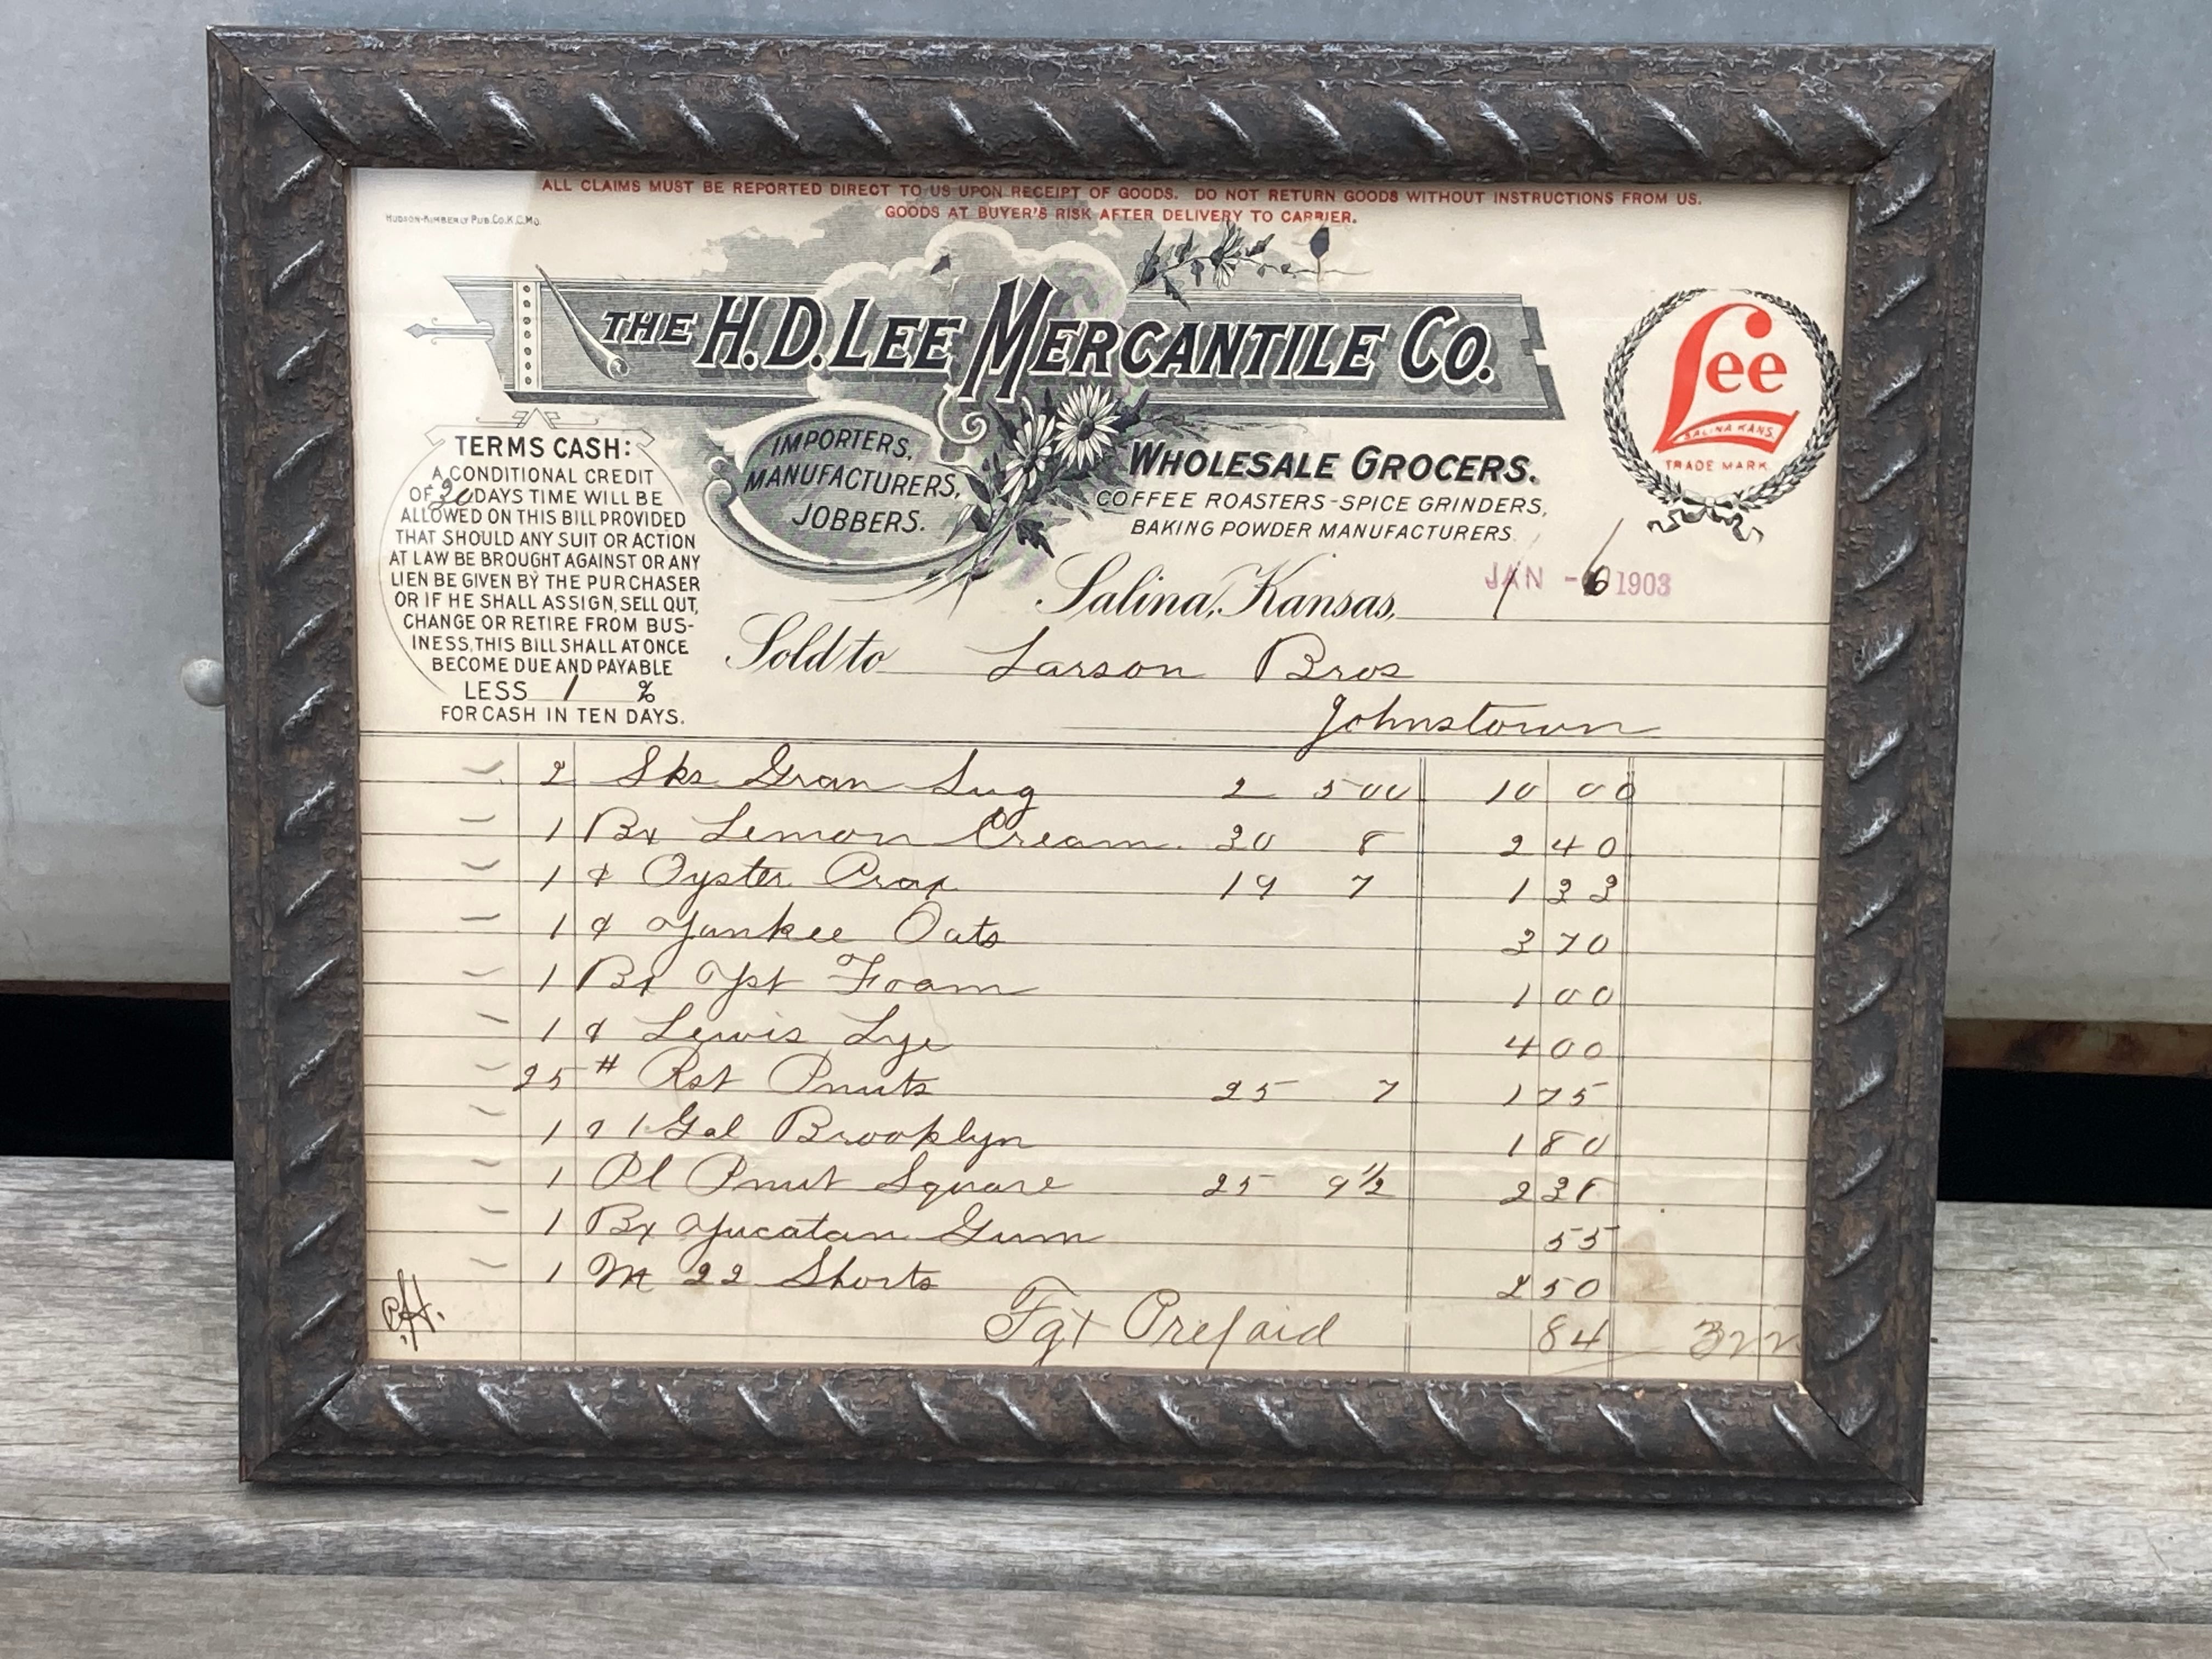 ALL CLAIMS MUST BE REPORTED DIRECT TO US UPON RECEIPT OF GOODS. DO NOT RETURN GOODS WITHOUT INSTRUCTIONS FROM US.
GOODS AT BUYER'S RISK AFTER DELIVERY TO CARRIER.
HUDSON-KIMBERLY PUB. CO. K.C. MO.
THE H.D. LEE MERCANTILE CO.
IMPORTERS,
MANUFACTURERS,
JOBBERS.
WHOLESALE GROCERS.
COFFEE ROASTERS-SPICE GRINDERS,
BAKING POWDER MANUFACTURERS.
Lee
SALINA KANS.
TRADE MARK.
TERMS CASH:
A CONDITIONAL CREDIT
OF 30 DAYS TIME WILL BE
ALLOWED ON THIS BILL PROVIDED
THAT SHOULD ANY SUIT OR ACTION
AT LAW BE BROUGHT AGAINST OR ANY
LIEN BE GIVEN BY THE PURCHASER
OR IF HE SHALL ASSIGN, SELL OUT,
CHANGE OR RETIRE FROM BUS-
INESS, THIS BILL SHALL AT ONCE
BECOME DUE AND PAYABLE
LESS 1 %
FOR CASH IN TEN DAYS.
Salina, Kansas, JAN - 6 1903
Sold to Larson Bros
Johnstown
2 Sks Gran Sug 2 500 10 00
1 Bx Lemon Cream 30 8 2 40
1 " Oyster 19 7 1 33
1 " Yankee Oats 3 70
1 Bx Yst Foam 1 00
1 " Lewis Lye 4 00
25 # Rst Pnuts 25 7 1 75
1 1 Gal Brooklyn 1 80
1 Pl Pnut Square 25 9½ 2 38
1 Bx Yucatan Gum 55
1 M 22 Shorts 2 50
Fgt Prepaid 84